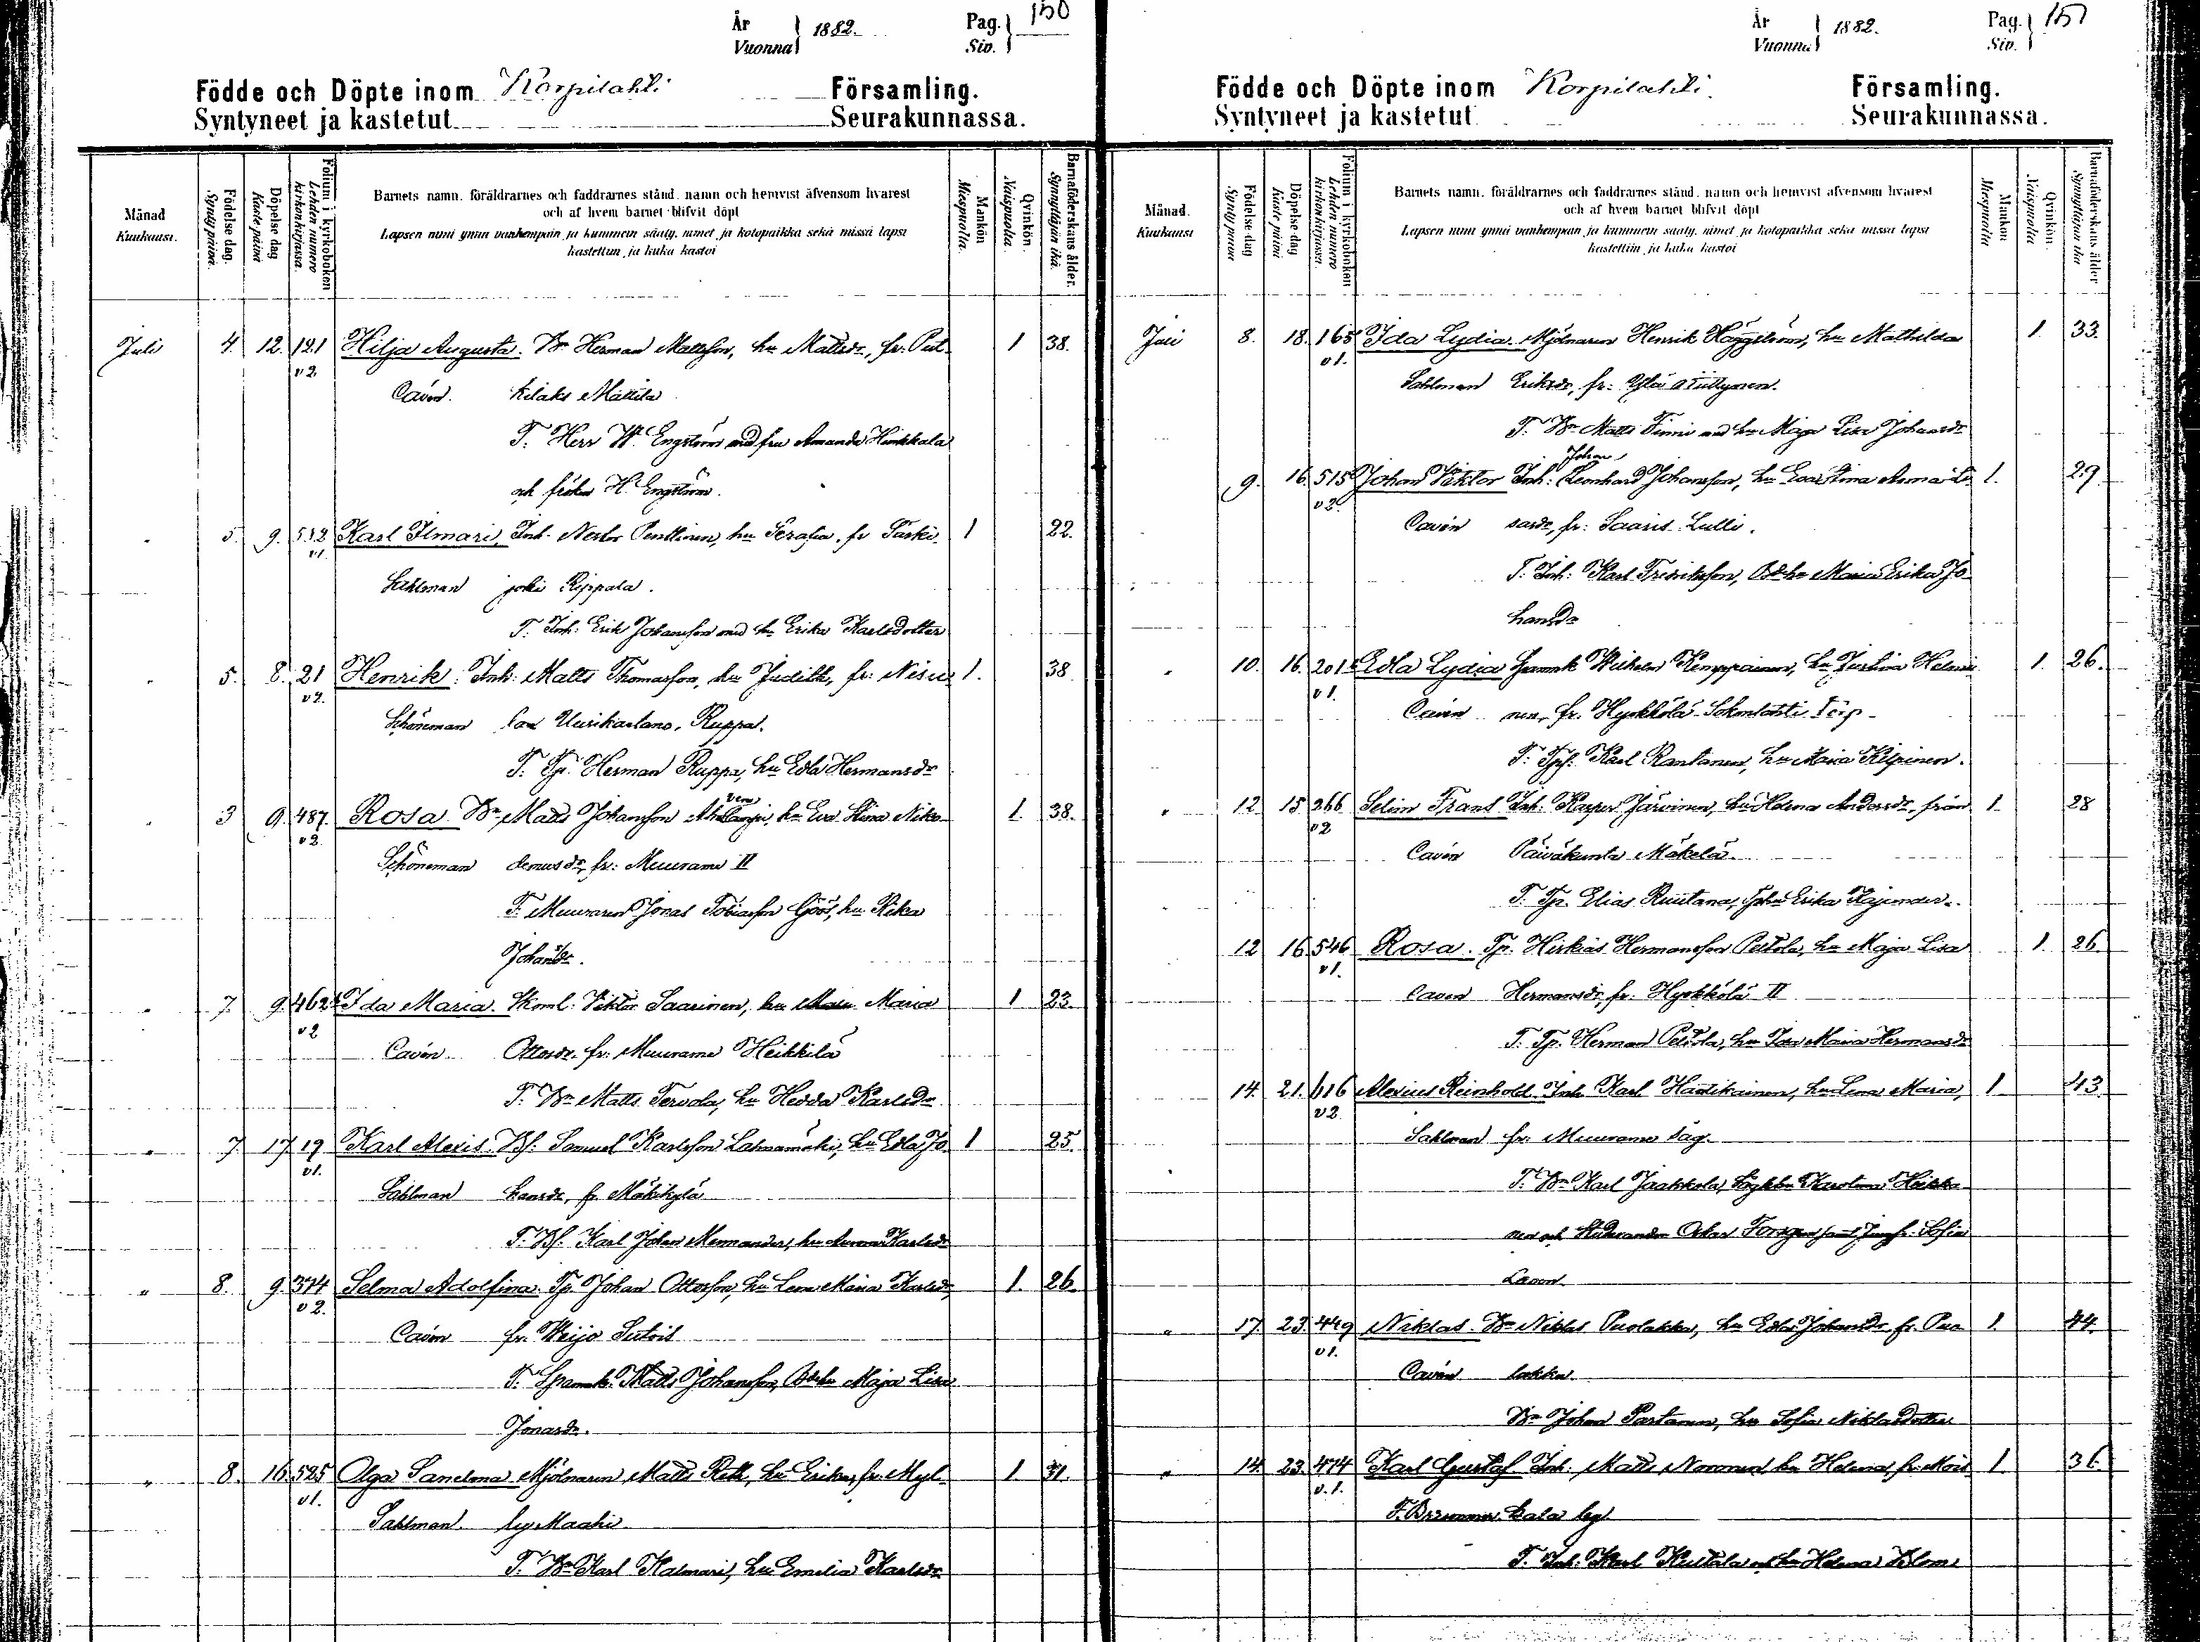 År
Vuonna
1882.
Pag.
Siv.
150
Födde och Döpte inom Korpilahti Församling.
Syntyneet ja kastetut Seurakunnassa.
Månad
Kuukausi.
Födelse dag.
Synty päivä.
Döpelse dag
Kaste päivä
Folium i kyrkoboken
Lehden numero kirkonkirjassa.
Barnets namn, föräldrarnes och faddrarnes stånd, namn och hemvist äfvensom hvarest
och af hvem barnet blifvit döpt
Lapsen nimi ynnä vanhempain ja kummein sääty, nimet ja kotopaikka sekä missä lapsi
kastettiin ja kuka kastoi
Mankön
Miespuolia.
Qvinkön.
Naispuolia.
Barnaföderskans ålder.
Synnyttäjän ikä.
Juli 4. 12. 121 Hilja Augusta. Bn Herman Mattsson, hu Mattsdr, fr. Put- 1 38.
v2. Cavén. kilaks Mattila
T. Herr W. Engström med fru Amanda Hinkkala
och fröken H. Engström.
5. 9. 512 Karl Ilmari. Inh. Nestor Penttinen, hu Serafia, fr Särki- 1 22.
v1. Sahlman joki Rippala.
T. Inh: Erik Johansson med hu Erika Karlsdotter
5. 8. 21 Henrik. Inh: Matts Thomasson, hu Judith, fr: Nisu 1. 38
v2. Schöneman Uusikartano, Ruppa.
T. Tp. Herman Ruppa, hu Edla Hermansdr
3 9. 487. Rosa. Bn Matts Johansson hu Eva Stina Niko- 1. 38.
v2. Schöneman demusdr, fr: Muurame II
T. Muuraren Jonas Tobiasson Göös, hu Rika
Johansdr.
" 7. 9. 462 Ida Maria. Skoml. Viktor Saarinen, hu Maria 1 23.
v2 Cavén Ottosdr. fr. Muurame Heikkilä
T. Bn Matts Tervola, hu Hedda Karlsdr
" 7 17 19 Karl Alexis. Bs. Samuel Karlsson Lahnamäki, hu Edla Jo- 1 25.
v1. Sahlman hansdr, fr. Mäkikylä
T. Bs. Karl Johan Mennander, hu Karlsdr
" 8. 9. 374 Selma Adolfina. Tp. Johan Ottosson, hu Lena Maria Karlsdr, 1. 26.
v2. Cavén fr. Weijo Sutois
T. Matts Johansson, Maja Lisa
Jonasdr.
" 8. 16. 525 Olga Sandena. Mjölnaren Matts Rett, hu Erika, fr. Myl- 1 31.
v1. Sahlman. ly Maahi.
T. Bn Karl Kalmari, hu Emilia Karlsdr
År
Vuonna
1882.
Pag.
Siv.
151
Födde och Döpte inom Korpilahti. Församling.
Syntyneet ja kastetut Seurakunnassa.
Månad.
Kuukausi
Födelse dag
Synty päivä
Döpelse dag
Kaste päivä
Folium i kyrkoboken
Lehden numero kirkonkirjassa.
Barnets namn, föräldrarnes och faddrarnes stånd, namn och hemvist äfvensom hvarest
och af hvem barnet blifvit döpt
Lapsen nimi ynnä vanhempain ja kummein sääty, nimet ja kotopaikka sekä missä lapsi
kastettiin ja kuka kastoi
Mankön
Miespuolia
Qvinkön.
Naispuolia
Barnaföderskans ålder
Synnyttäjän ikä
Juli 8. 18. 165 Ida Lydia. Mjölnaren Henrik Häggström, hu Mathilda 1. 33.
v1. Sahlman Eriksdr, fr:
T. Bn Matts Finni med hu Maja Lisa Johansdr
Johan
9. 16. 515 Johan Viktor Inh: Leonhard Johansson, hu Eva Stina 1. 29.
v2. Cavén fr: Saaris Lulli.
T. Inh: Karl Fredriksson, Maria Erika Jo-
hansdr
" 10. 16. 201 Edla Lydia Wilhelm Kemppainen, hu Justina Heleni- 1. 26.
v1. Cavén nen, fr. Hyökkölä
T. Karl Rantanen, hu Maria Kilpinen.
" 12 15 266 Selim Frans Inh. Kasper Järvinen, hu Helena Andersdr, från 1. 28
v2 Cavén Päiväkunta Mäkelä.
T. Tp. Elias Ruutana, Erika Kajander.
12 16 546 Rosa. Tp. Hiskias Hermansson Peltola, hu Maja Lisa 1. 26
v1. Cavén Hermansdr, fr. Hyökkölä II
T. Tp. Herman Peltola, hu Ida Maria Hermansdr
14. 21. 616 Alexius Reinhold. Inh. Karl Hautikainen, hu Lena Maria, 1 43
v2 Sahlman fr. Muurame såg.
T. Bn Karl Jaakkola, Karolina
nen och Oskar Forsgren samt Jungfr. Sofia
" 17. 23. 449 Niklas. Bn Niklas Puolakka, hu Edla Johansdr fr. Puo- 1. 44.
v1. Cavén lakka
Bn Johan Partanen, hu Sofia Niklasdotter
" 14. 23. 474 Karl Gustaf Inh. Matts Noronen hu Helena, fr. Mois- 1. 36.
v.1. kala by.
T. Inh. Karl hu Helena Blom